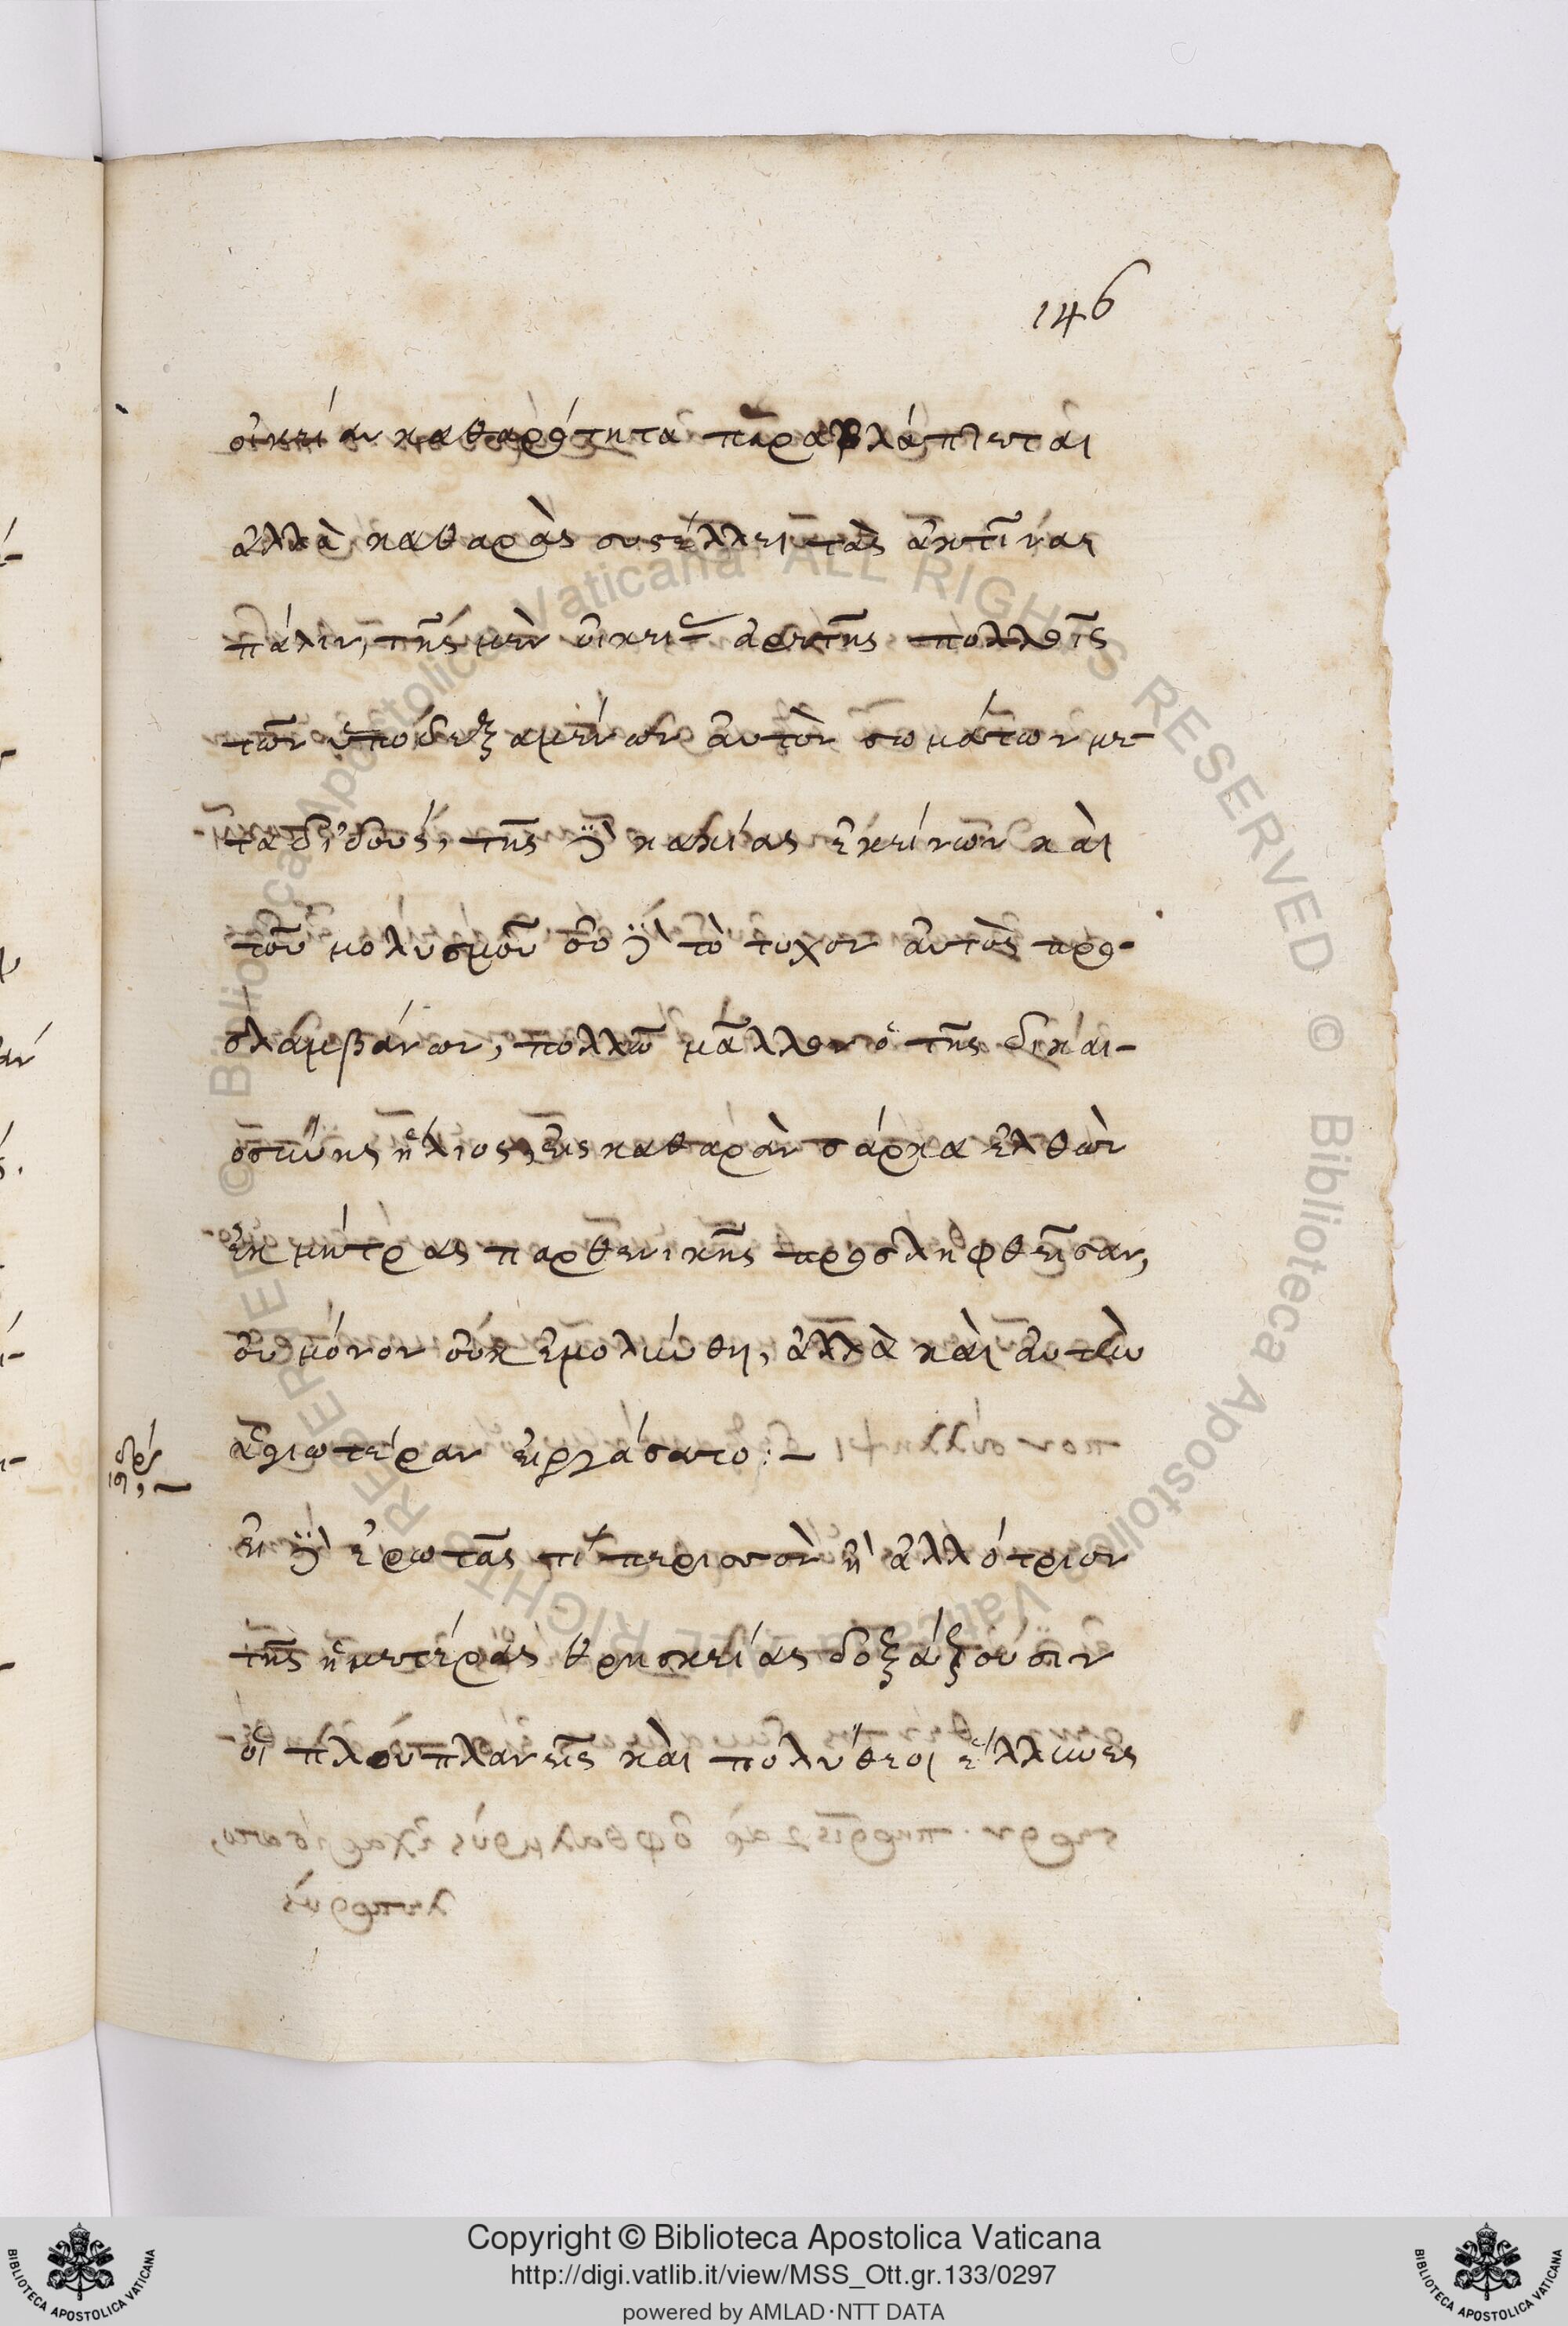 146
οἰκείαν καθαρότητα παραβλάπτεται
ἀλλὰ καθαρὰς συστέλλει τὰς ἀκτῖνας
πάλιν, τῆς μὲν οἰκείας ἀρετῆς πολλοῖς
τῶν ὑποδεξαμένων αὐτὸν σωμάτων με-
ταδιδούς, τῆς δὲ κακίας ἐκείνων καὶ
τοῦ μολυσμοῦ οὐδὲ τὸ τυχὸν αὐτὸς προ-
σλαμβάνων, πολλῶ μᾶλλον ὁ τῆς δικαι-
οσύνης ἥλιος, εἰς καθαρὰν σάρκα ἐλθὼν
ἐκ μήτρας παρθενικῆς προσληφθεῖσαν,
οὐ μόνον οὐκ ἐμολύνθη, ἀλλὰ καὶ αὐτὴν
ἁγιωτέραν εἰργάσατο :-
εἰ δὲ ἐρωτᾶς τί περισσὸν ἢ ἀλλότριον
τῆς ἡμετέρας θρησκείας δοξάζουσιν
οἱ πλουπλανεῖς καὶ πολύθεοι ἕλληνες
Copyright © Biblioteca Apostolica Vaticana
http://digi.vatlib.it/view/MSS_Ott.gr.133/0297
powered by AMLAD·NTT DATA
BIBLIOTECA APOSTOLICA VATICANA
BIBLIOTECA APOSTOLICA VATICANA
© Biblioteca Apostolica Vaticana ALL RIGHTS RESERVED © Biblioteca Apostolica Vaticana ALL RIGHTS RESERVED